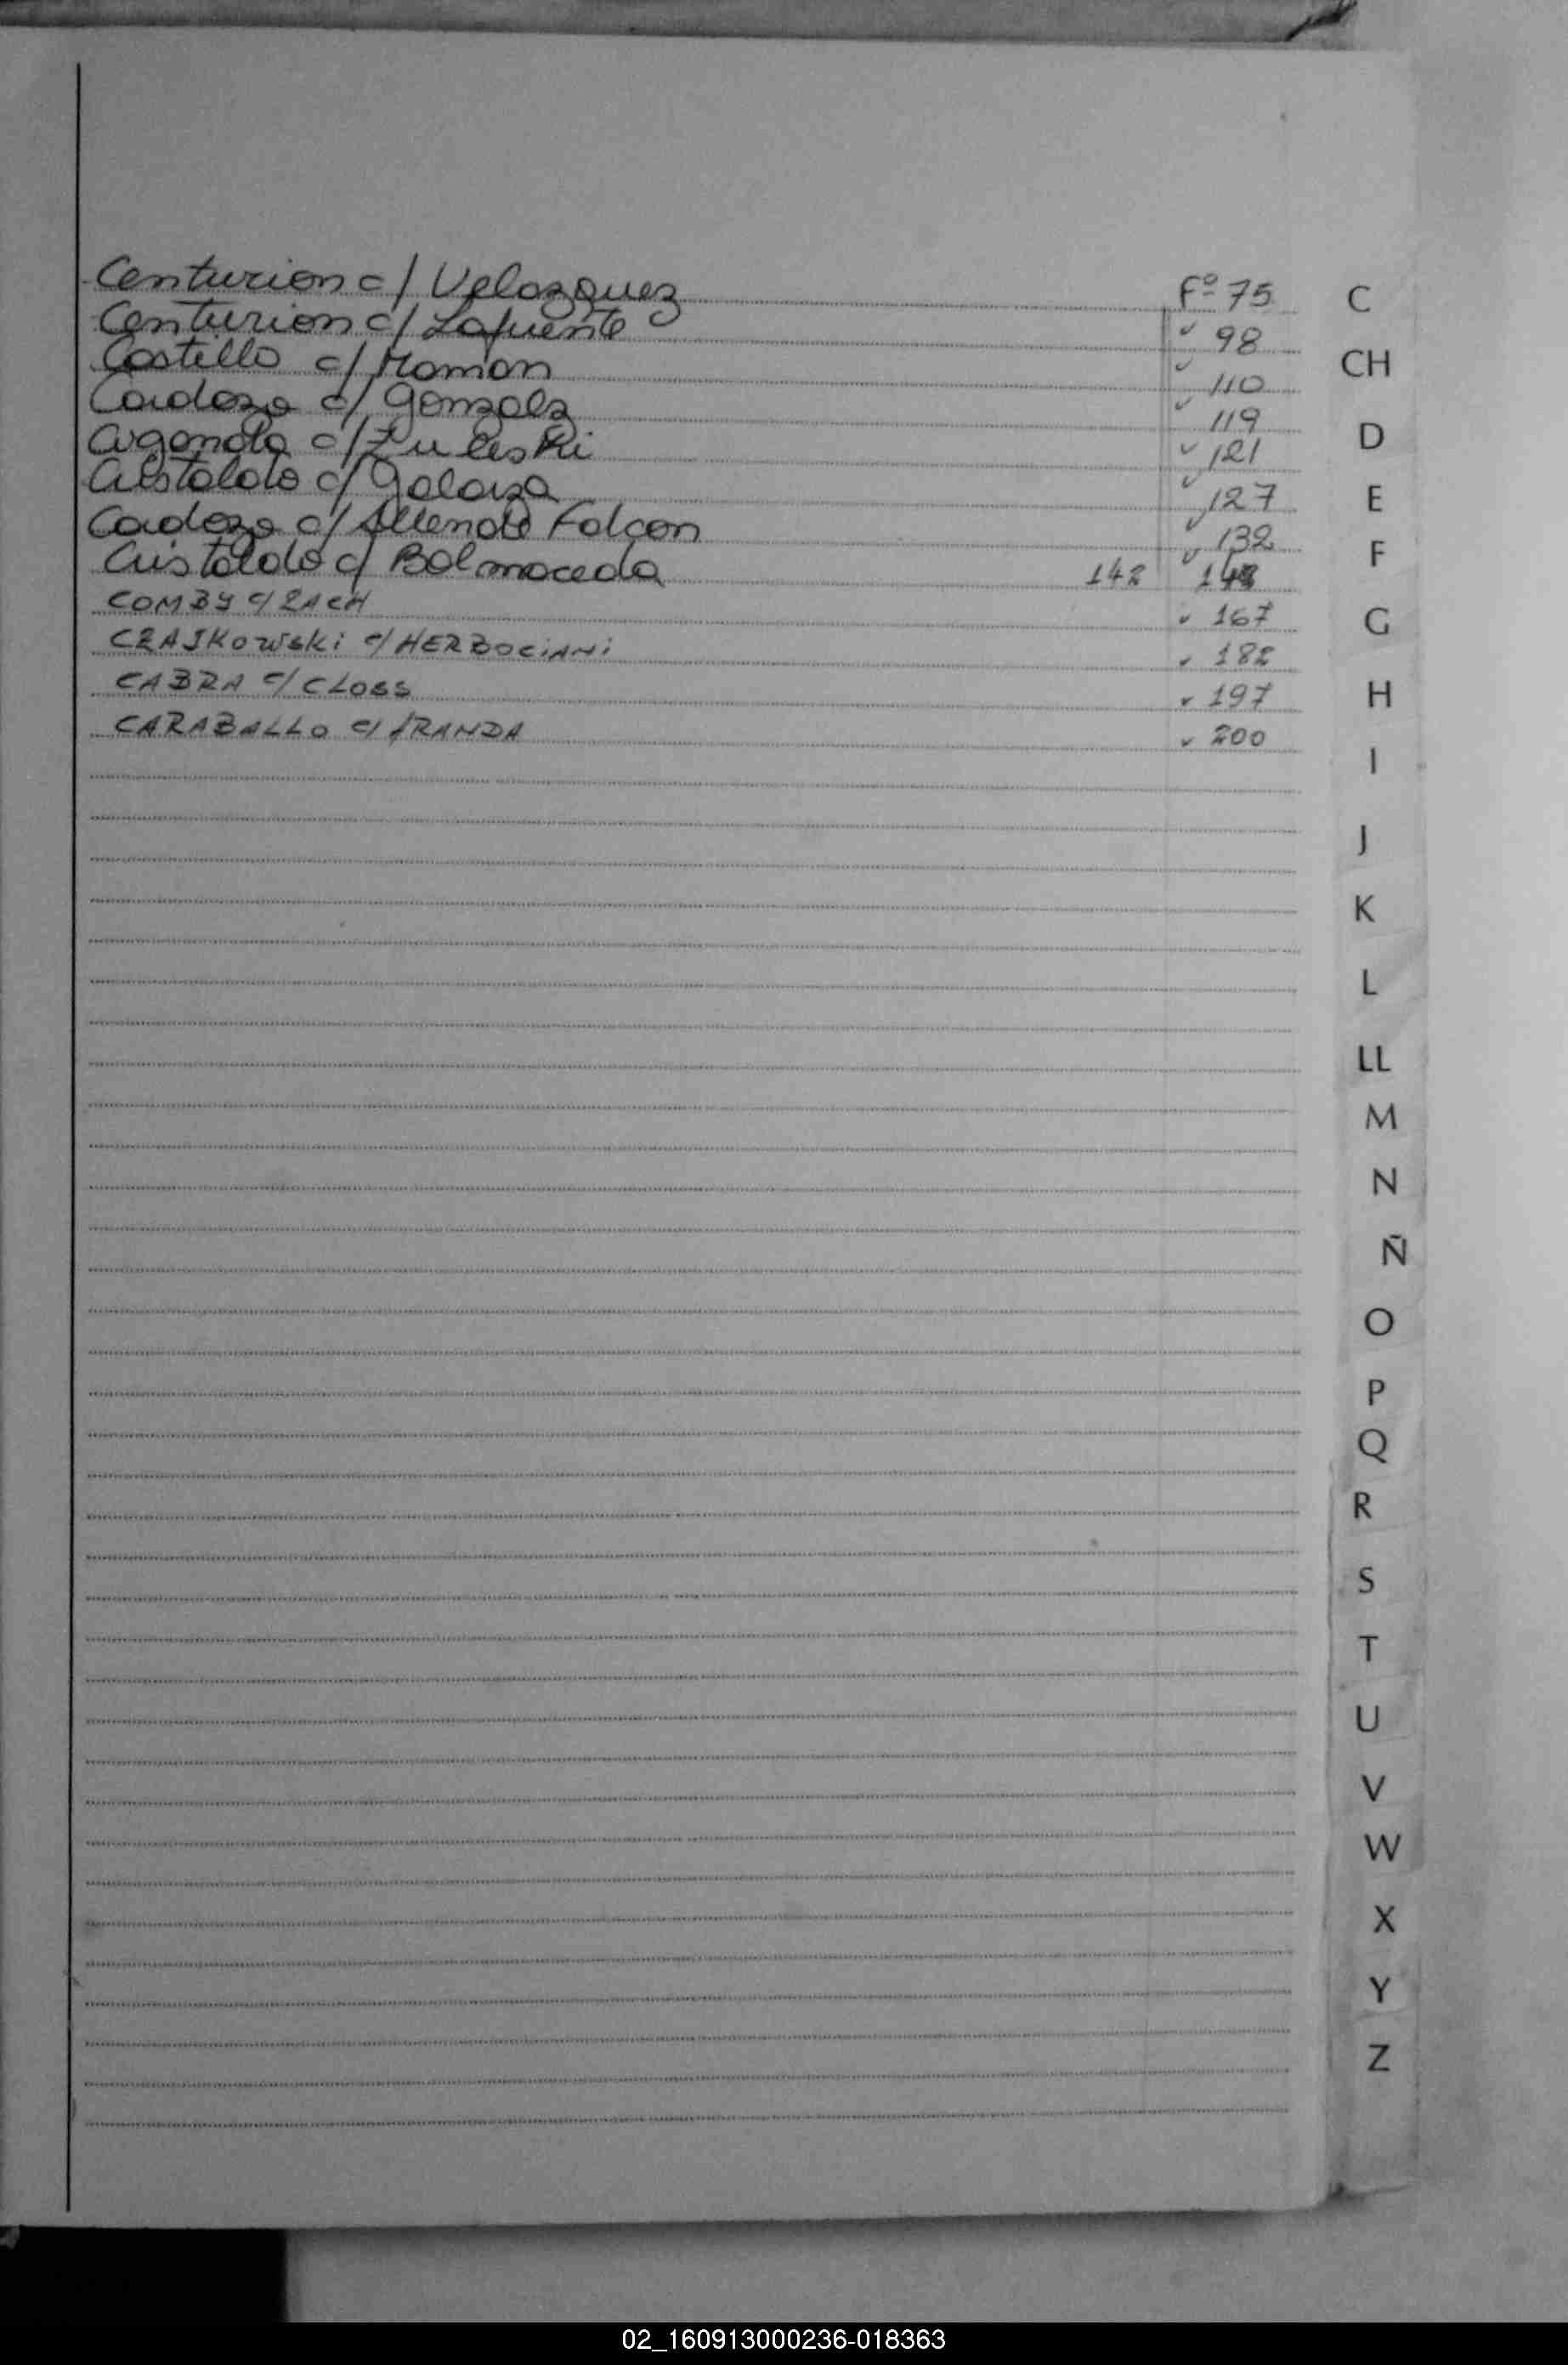 Centurion c/ Velazquez Fº 75
Centurion c/ Lafuente 98
Castillo c/ Mamon 110
Cardozo c/ Gonzalz 119
c/ Zuleski 121
c/ Galarza 127
Cardozo c/ Allende Falcon 132
Cristaldo c/ Balmaceda 142
COMBY c/ ZACH 167
CZAJKOWSKi c/ HERBOCiANi 182
CABRA c/ CLOSS 197
CARABALLO c/ IRANDA 200
C
CH
D
E
F
G
H
I
J
K
L
LL
M
N
Ñ
O
P
Q
R
S
T
U
V
W
X
Y
Z
02_160913000236-018363